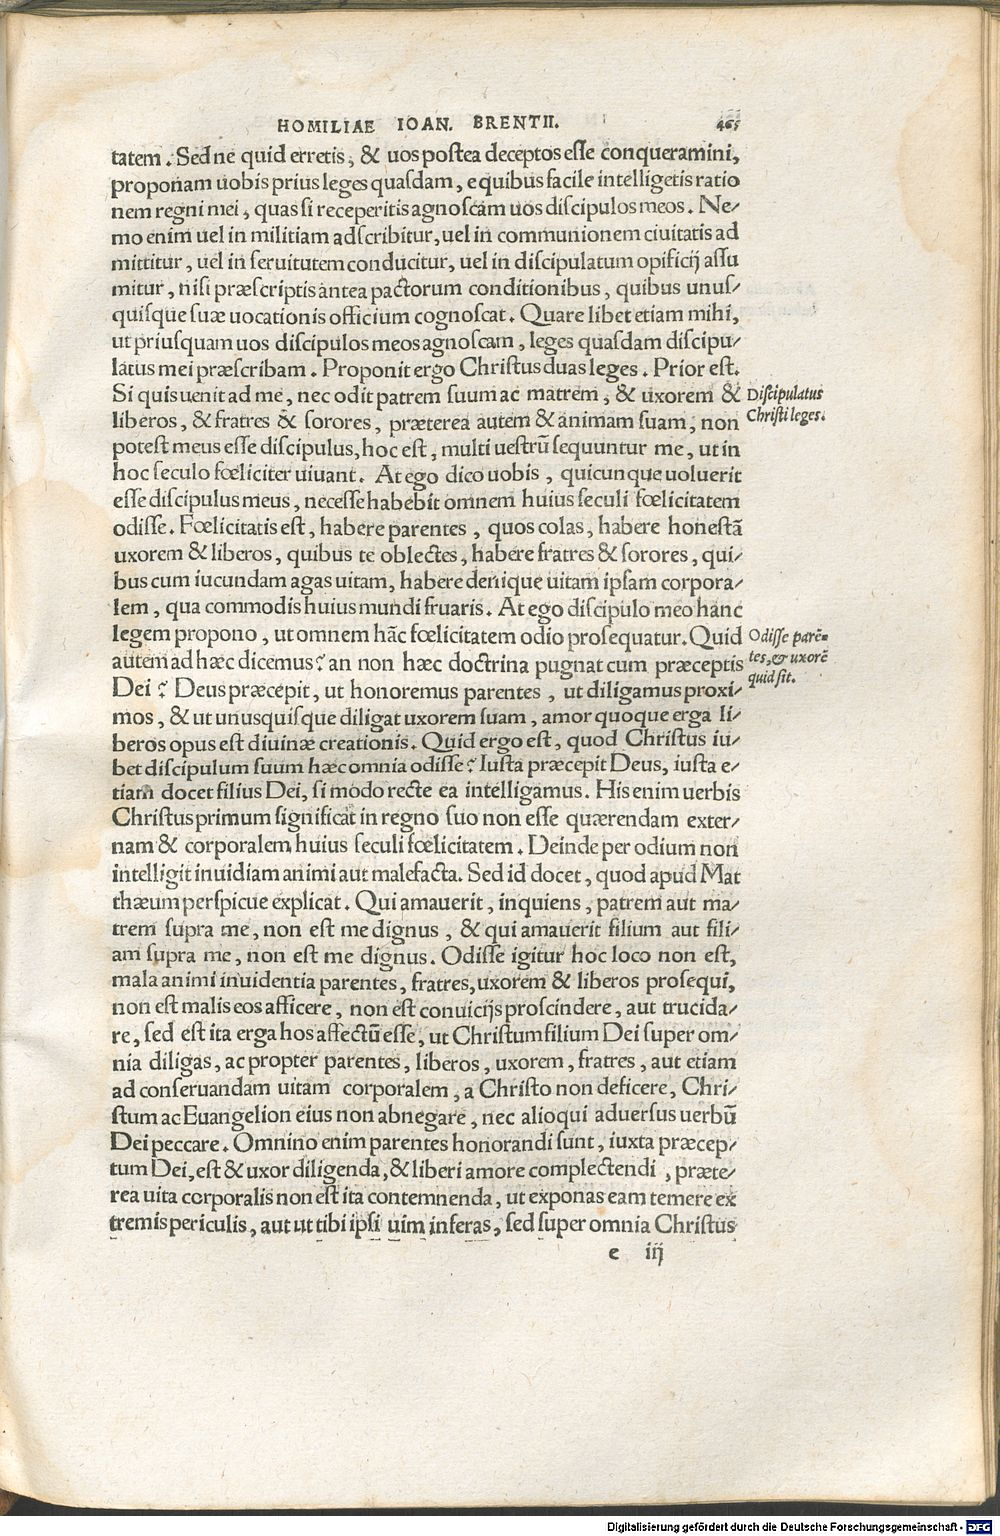 HOMILIAE IOAN. BRENTII. 465
tatem. Sed ne quid erretis, & uos postea deceptos esse conqueramini,
proponam uobis prius leges quasdam, e quibus facile intelligetis ratio
nem regni mei, quas si receperitis agnoscam uos discipulos meos. Ne-
mo enim uel in militiam adscribitur, uel in communionem ciuitatis ad
mittitur, uel in seruitutem conducitur, uel in discipulatum opificij assu
mitur, nisi præscriptis antea pactorum conditionibus, quibus unus-
quisque suæ uocationis officium cognoscat. Quare libet etiam mihi,
ut priusquam uos discipulos meos agnoscam, leges quasdam discipu-
latus mei præscribam. Proponit ergo Christus duas leges. Prior est.
Si quis uenit ad me, nec odit patrem suum ac matrem, & uxorem &
liberos, & fratres & sorores, præterea autem & animam suam, non
potest meus esse discipulus, hoc est, multi uestrū sequuntur me, ut in
hoc seculo fœliciter uiuant. At ego dico uobis, quicunque uoluerit
esse discipulus meus, necesse habebit omnem huius seculi fœlicitatem
odisse. Fœlicitatis est, habere parentes, quos colas, habere honestā
uxorem & liberos, quibus te oblectes, habere fratres & sorores, qui-
bus cum iucundam agas uitam, habere denique uitam ipsam corpora-
lem, qua commodis huius mundi fruaris. At ego discipulo meo hanc
legem propono, ut omnem hāc fœlicitatem odio prosequatur. Quid
autem ad hæc dicemus? an non hæc doctrina pugnat cum præceptis
Dei? Deus præcepit, ut honoremus parentes, ut diligamus proxi-
mos, & ut unusquisque diligat uxorem suam, amor quoque erga li-
beros opus est diuinæ creationis. Quid ergo est, quod Christus iu-
bet discipulum suum hæc omnia odisse? Iusta præcepit Deus, iusta e-
tiam docet filius Dei, si modo recte ea intelligamus. His enim uerbis
Christus primum significat in regno suo non esse quærendam exter-
nam & corporalem huius seculi fœlicitatem. Deinde per odium non
intelligit inuidiam animi aut malefacta. Sed id docet, quod apud Mat
thæum perspicue explicat. Qui amauerit, inquiens, patrem aut ma-
trem supra me, non est me dignus, & qui amauerit filium aut fili-
am supra me, non est me dignus. Odisse igitur hoc loco non est,
mala animi inuidentia parentes, fratres, uxorem & liberos prosequi,
non est malis eos afficere, non est conuicijs proscindere, aut trucida-
re, sed est ita erga hos affectū esse, ut Christum filium Dei super om-
nia diligas, ac propter parentes, liberos, uxorem, fratres, aut etiam
ad conseruandam uitam corporalem, a Christo non deficere, Chri-
stum ac Euangelion eius non abnegare, nec alioqui aduersus uerbū
Dei peccare. Omnino enim parentes honorandi sunt, iuxta præcep-
tum Dei, est & uxor diligenda, & liberi amore complectendi, præte-
rea uita corporalis non est ita contemnenda, ut exponas eam temere ex
tremis periculis, aut ut tibi ipsi uim inferas, sed super omnia Christus
e iij
Discipulatus
Christi leges.
Odisse parē-
tes, & uxorē
quid sit.
Digitalisierung gefördert durch die Deutsche Forschungsgemeinschaft - DFG